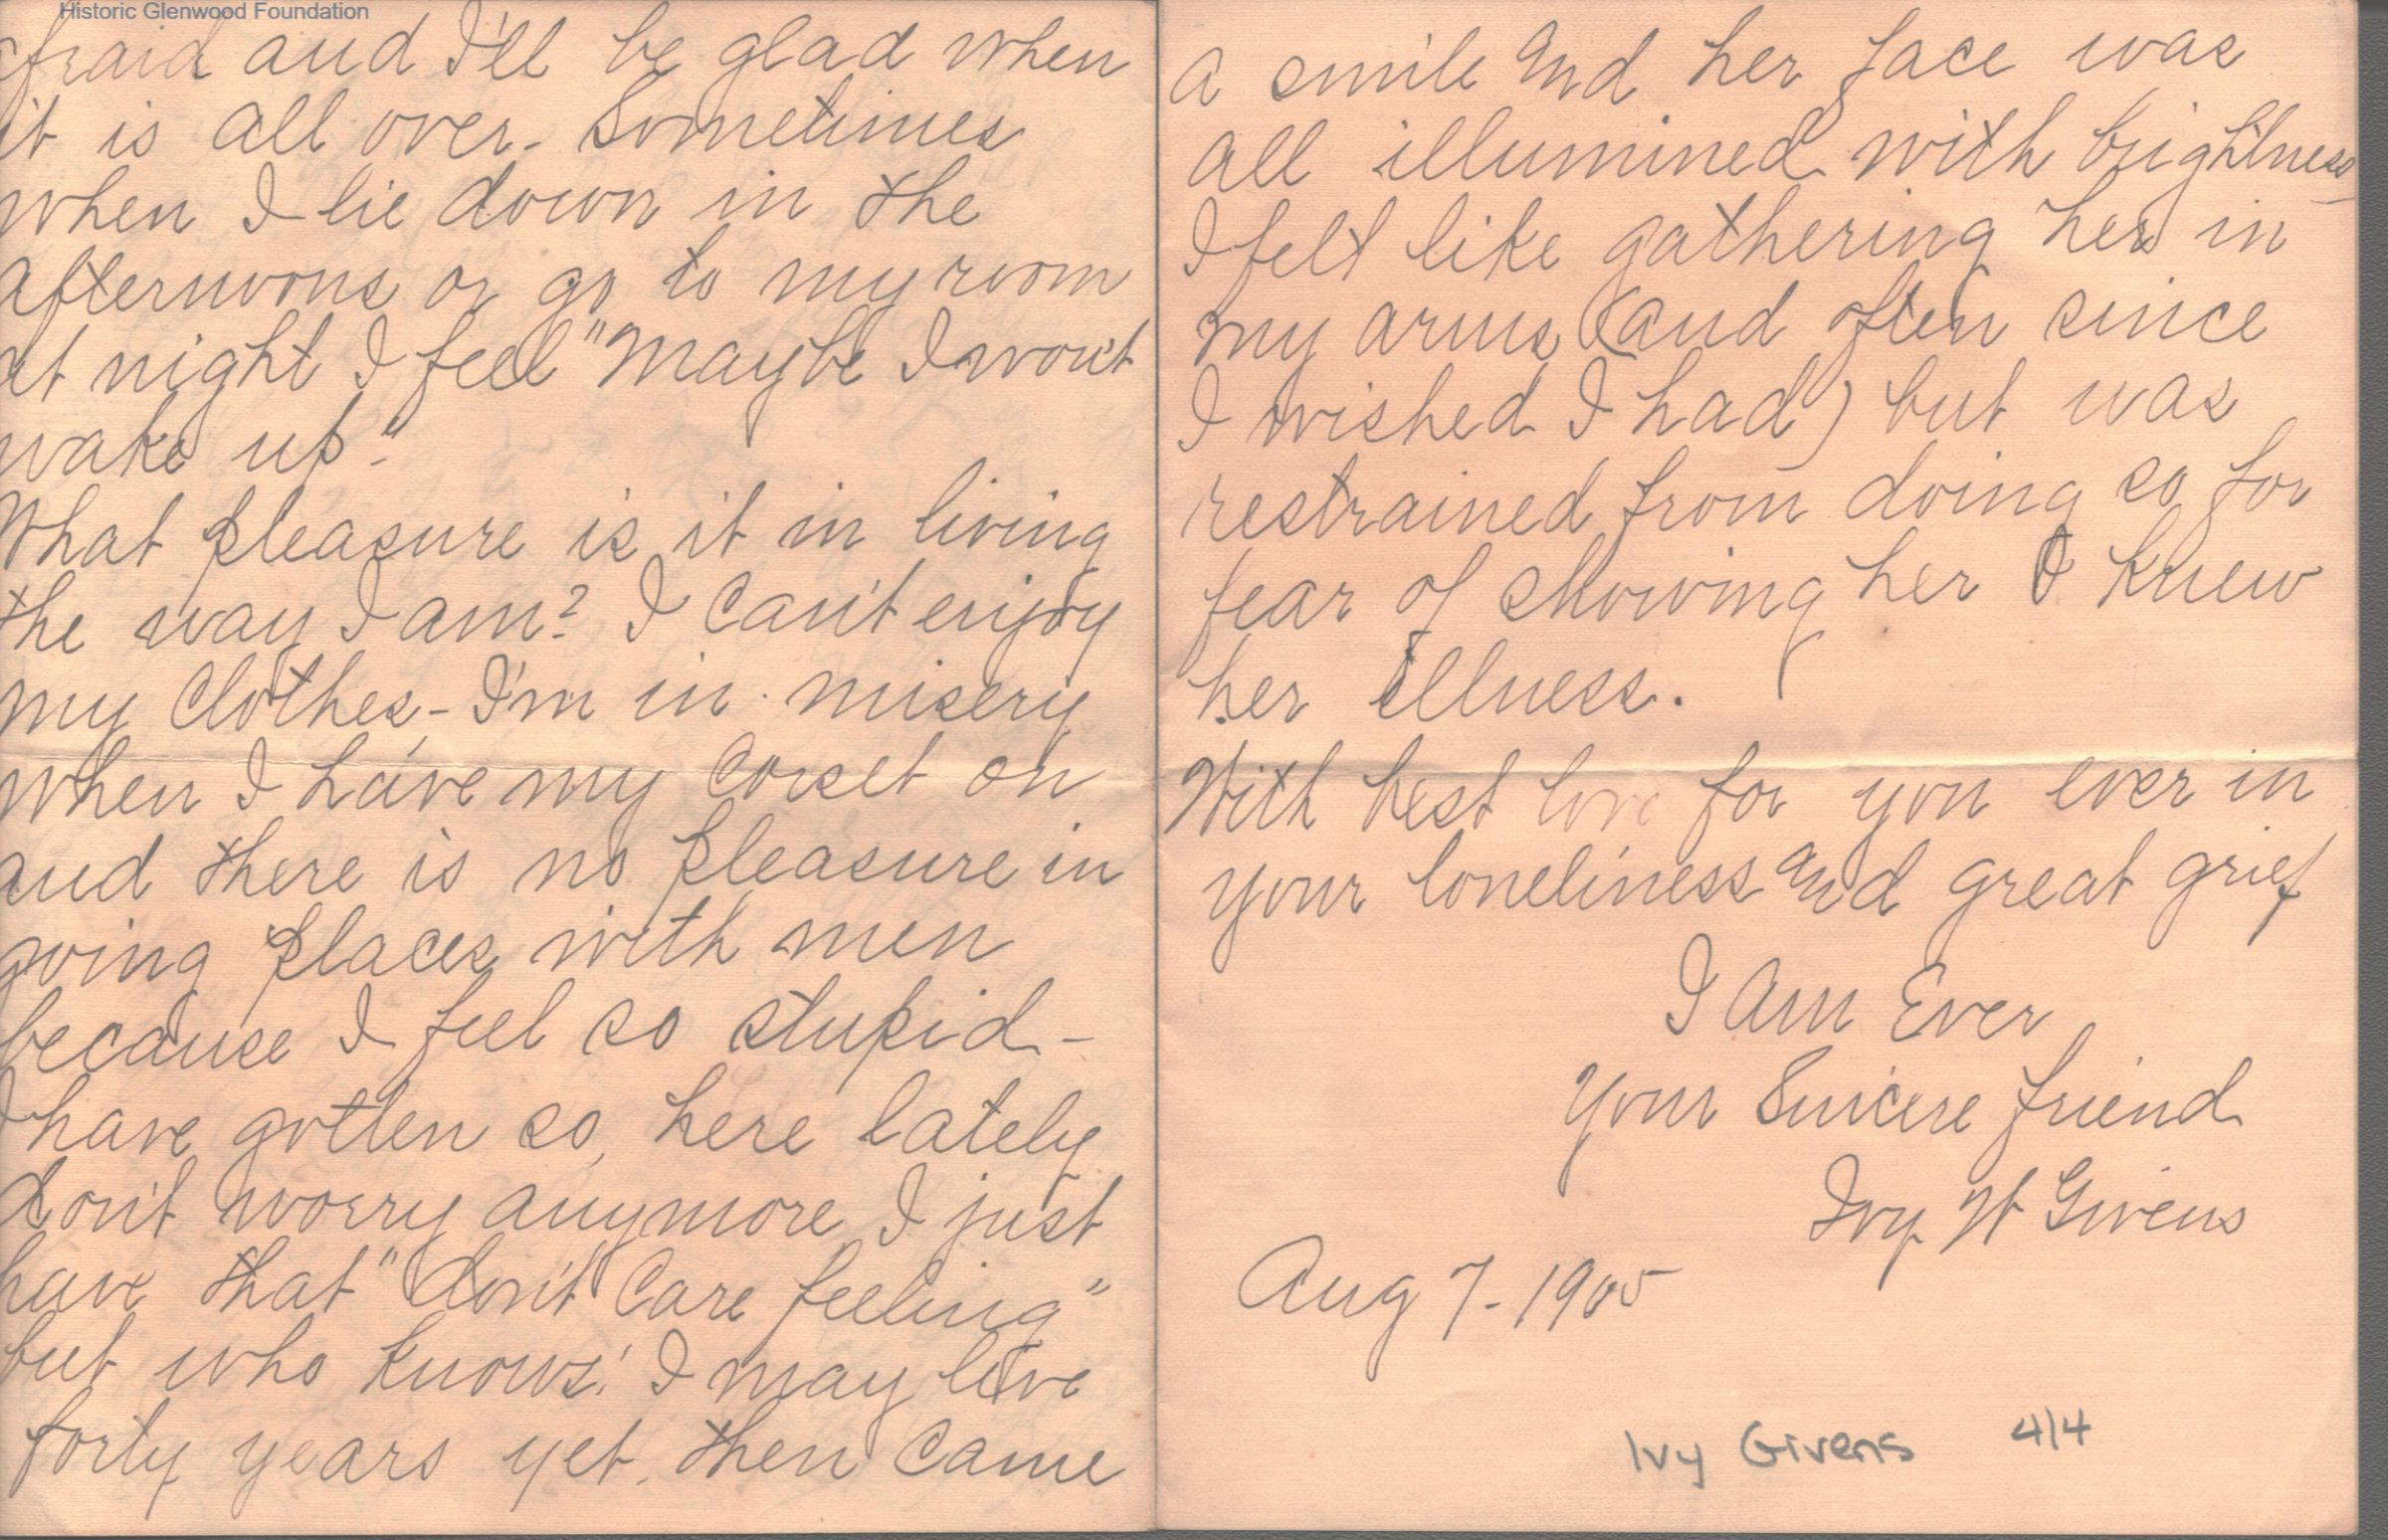 Historic Glenwood Foundation
afraid and I'll be glad when
it is all over. Sometimes
when I lie down in the
afternoons or go to my room
at night I feel "Maybe I won't
wake up".
What pleasure is it in living
the way I am? I can't enjoy
my Clothes - I'm in misery
when I have my corset on
and there is no pleasure in
going places with men
because I feel so stupid -
I have gotten so, here lately
don't worry anymore I just
have that "don't care feeling"
but who knows! I may live
forty years yet. then came
a smile and her face was
all illumined with brightness -
I felt like gathering her in
my arms (and often since
I wished I had) but was
restrained from doing so for
fear of showing her I knew
her illness.
With best love for you ever in
your loneliness and great grief
I Am Ever
Your Sincere friend
Ivy W Givens
Aug 7 - 1905
Ivy Givens 4/4